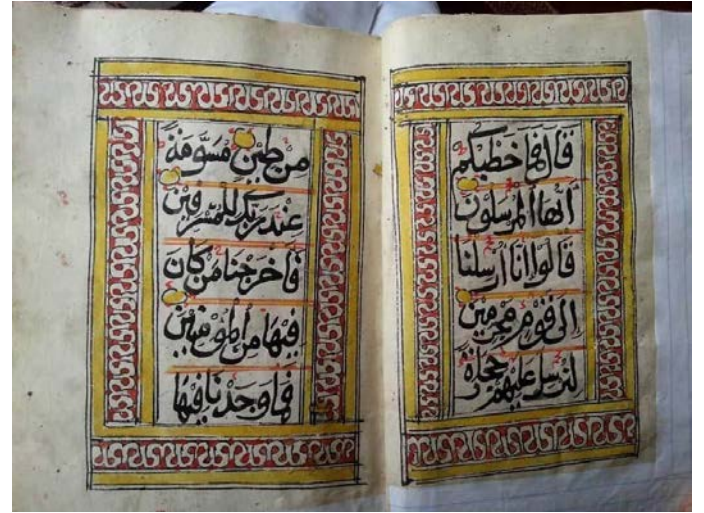 قَالَ فَمَا خَطْبُكُمْ
اَيُّهَا الْمُرْسَلُوْنَ
قَالُوْا اِنَّا اُرْسِلْنَا
اِلٰى قَوْمٍ مُجْرِمِيْنَ
لِنُرْسِلَ عَلَيْهِمْ حِجَارَةً
مِنْ طِيْنٍ مُسَوَّمَةً
عِنْدَ رَبِّكَ لِلْمُسْرِفِيْنَ
فَاَخْرَجْنَا مَنْ كَانَ
فِيْهَا مِنَ الْمُؤْمِنِيْنَ
فَمَا وَجَدْنَا فِيْهَا